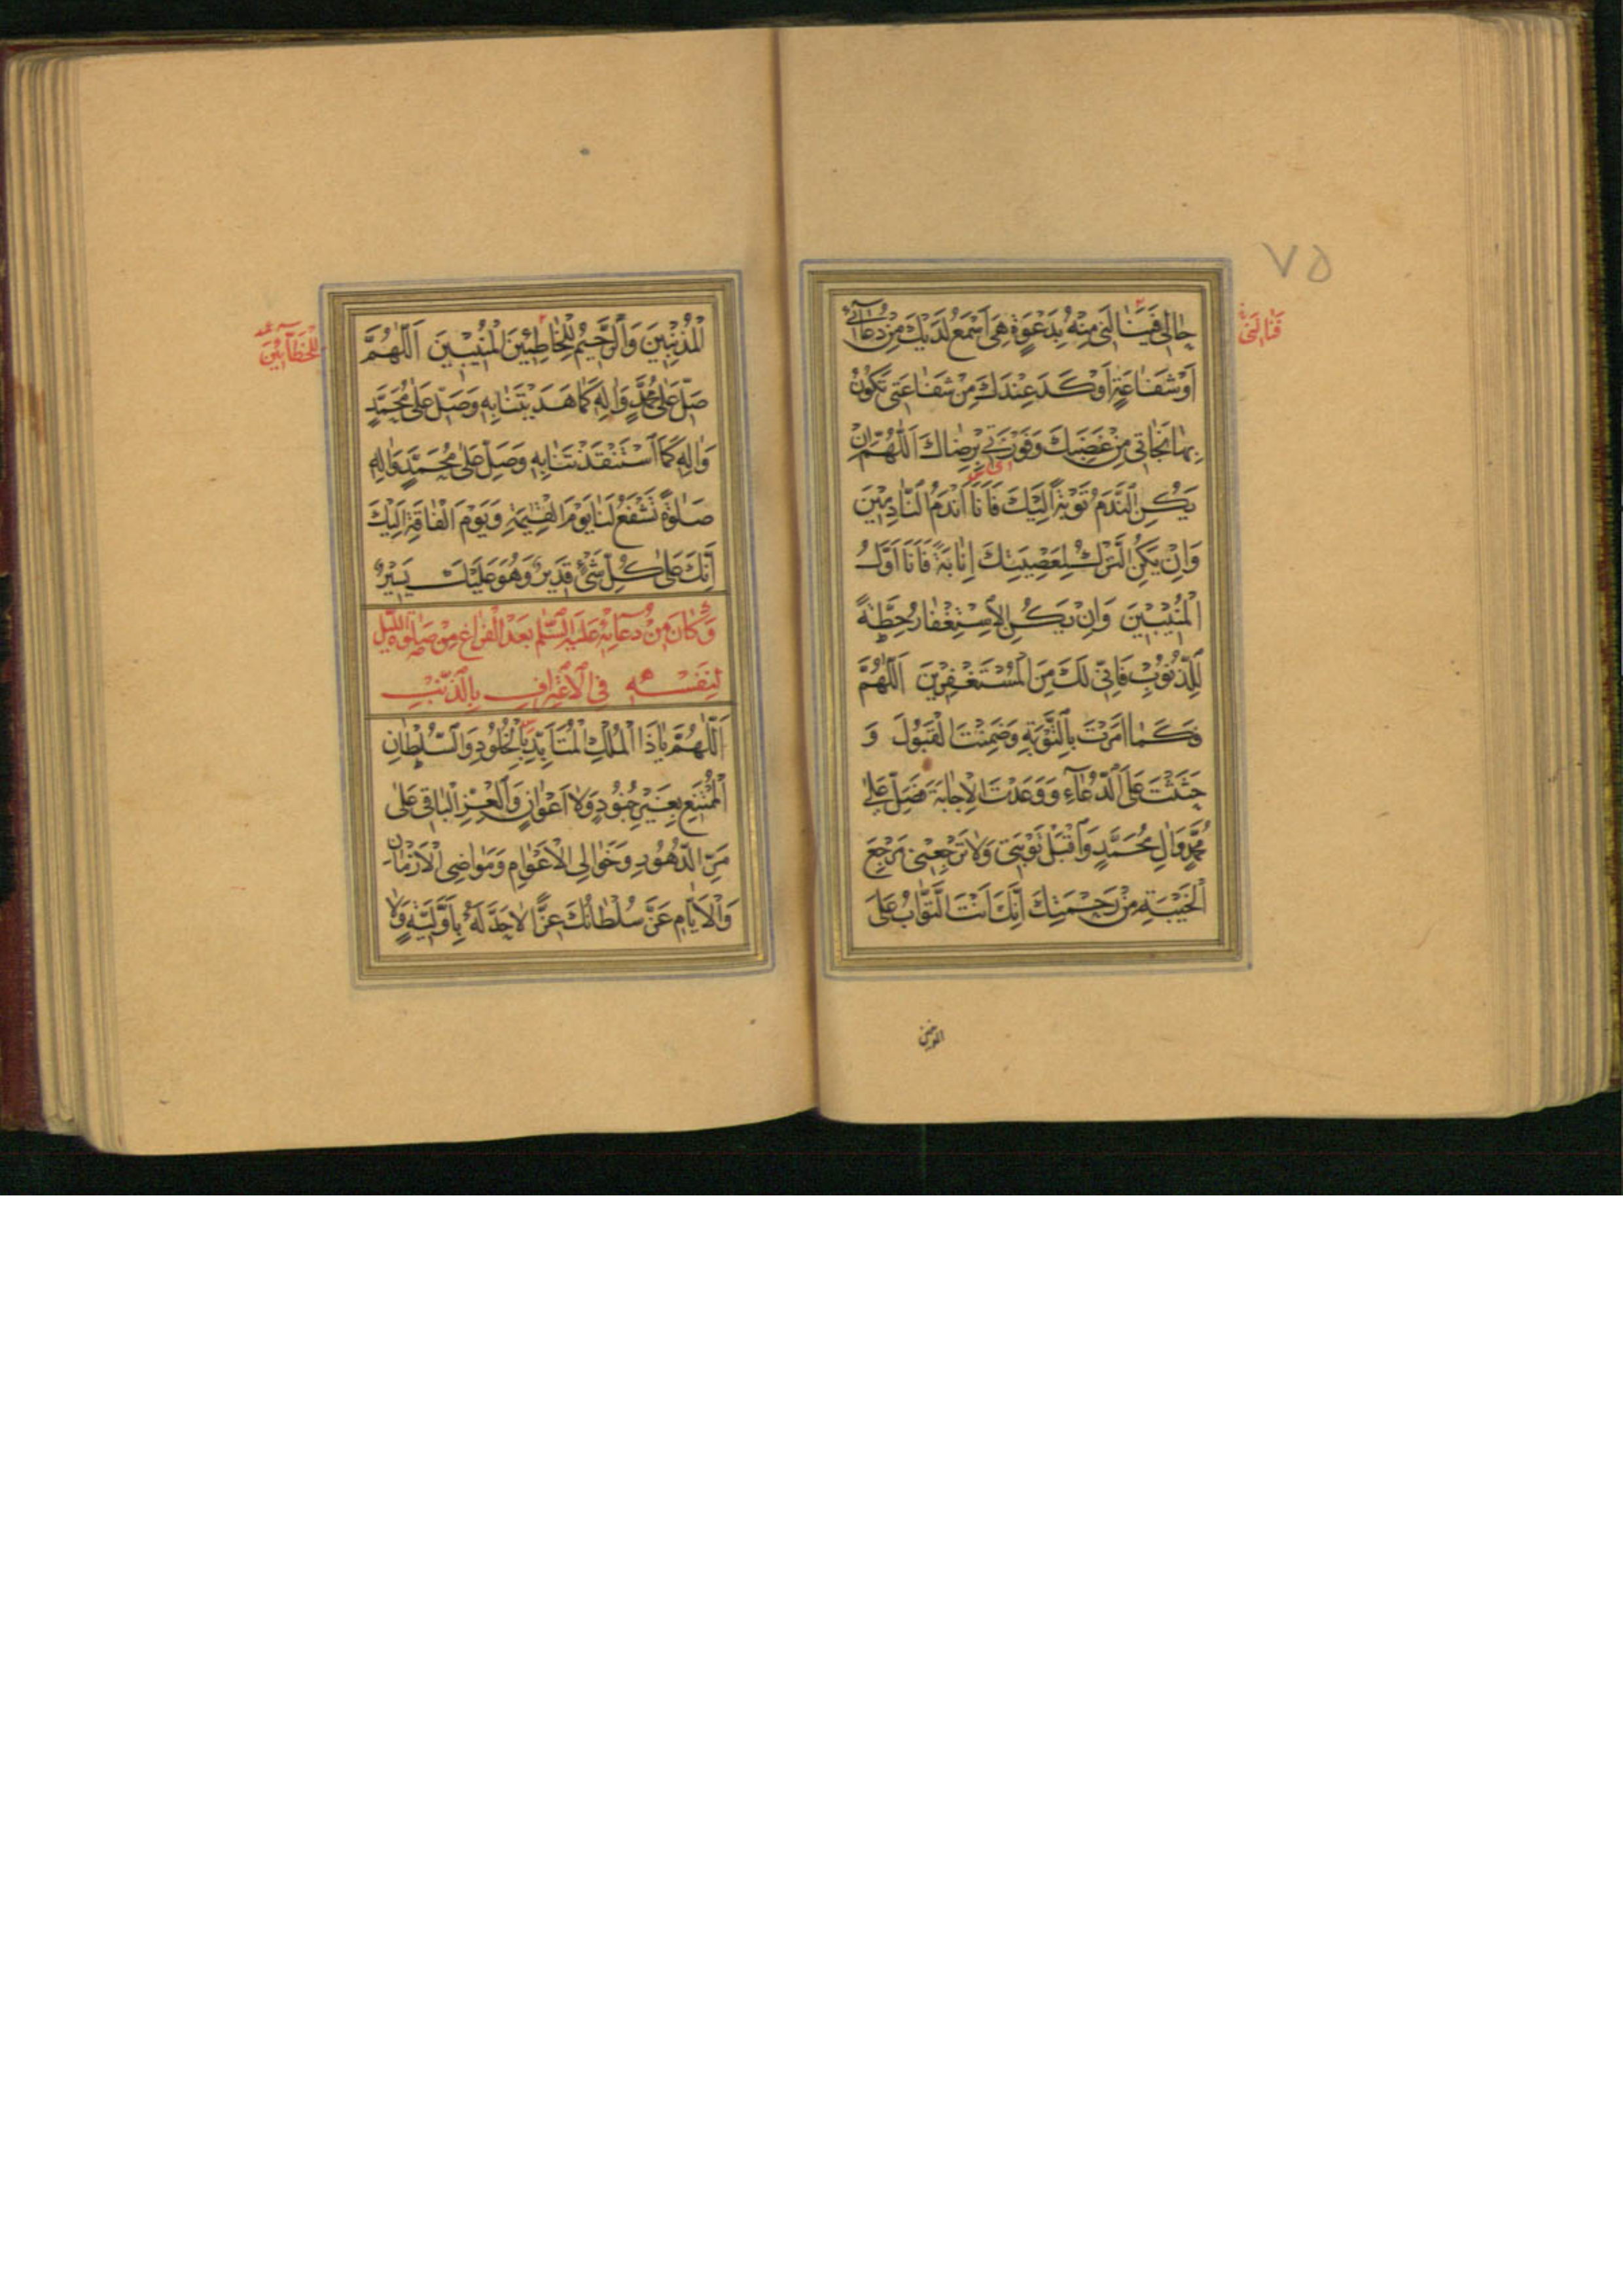 ٧٥
حَالِي فَيَنَالَنِي مِنْهُ بِدَعْوَةٍ هِيَ أَسْمَعُ لَدَيْكَ مِنْ دُعَائِي
فَتَنَالَنِي
أَوْ شَفَاعَةٍ أَوْكَدَ عِنْدَكَ مِنْ شَفَاعَتِي تَكُونُ
بِهَا نَجَاتِي مِنْ غَضَبِكَ وَفَوْزَتِي بِرِضَاكَ اَللّٰهُمَّ إِنْ
يَكُنِ النَّدَمُ تَوْبَةً إِلَيْكَ فَأَنَا أَنْدَمُ النَّادِمِينَ
وَإِنْ يَكُنِ التَّرْكُ لِمَعْصِيَتِكَ إِنَابَةً فَأَنَا أَوَّلُ
الْمُنِيبِينَ وَإِنْ يَكُنِ الْاِسْتِغْفَارُ حِطَّةً
لِلذُّنُوبِ فَإِنِّي لَكَ مِنَ الْمُسْتَغْفِرِينَ اَللّٰهُمَّ
فَكَمَا أَمَرْتَ بِالتَّوْبَةِ وَضَمِنْتَ الْقَبُولَ وَ
حَثَثْتَ عَلَى الدُّعَاءِ وَوَعَدْتَ الْإِجَابَةَ فَصَلِّ عَلَى
مُحَمَّدٍ وَآلِ مُحَمَّدٍ وَاقْبَلْ تَوْبَتِي وَلَا تَرْجِعْنِي مَرْجِعَ
الْخَيْبَةِ مِنْ رَحْمَتِكَ إِنَّكَ أَنْتَ التَّوَّابُ عَلَى
الْمُذْنِبِينَ وَالرَّحِيمُ لِلْخَاطِئِينَ الْمُنِيبِينَ اَللّٰهُمَّ
لِلْخَطَّائِينَ
صَلِّ عَلَى مُحَمَّدٍ وَآلِهِ كَمَا هَدَيْتَنَا بِهِ وَصَلِّ عَلَى مُحَمَّدٍ
وَآلِهِ كَمَا اسْتَنْقَذْتَنَا بِهِ وَصَلِّ عَلَى مُحَمَّدٍ وَآلِهِ
صَلٰوةً تَشْفَعُ لَنَا يَوْمَ الْقِيٰمَةِ وَيَوْمَ الْفَاقَةِ إِلَيْكَ
إِنَّكَ عَلَى كُلِّ شَيْءٍ قَدِيرٌ وَهُوَ عَلَيْكَ يَسِيرٌ
وَكَانَ مِنْ دُعَائِهِ عَلَيْهِ السَّلٰمُ بَعْدَ الْفَرَاغِ مِنْ صَلٰوةِ اللَّيْلِ
لِنَفْسِهِ فِي الْاِعْتِرَافِ بِالذَّنْبِ
اَللّٰهُمَّ يَا ذَا الْمُلْكِ الْمُتَأَبِّدِ بِالْخُلُودِ وَالسُّلْطَانِ
الْمُمْتَنِعِ بِغَيْرِ جُنُودٍ وَلَا أَعْوَانٍ وَالْعِزِّ الْبَاقِي عَلَى
مَرِّ الدُّهُورِ وَخَوَالِي الْأَعْوَامِ وَمَوَاضِي الْأَزْمَانِ
وَالْأَيَّامِ عَزَّ سُلْطَانُكَ عِزًّا لَا حَدَّ لَهُ بِأَوَّلِيَّةٍ وَلَا